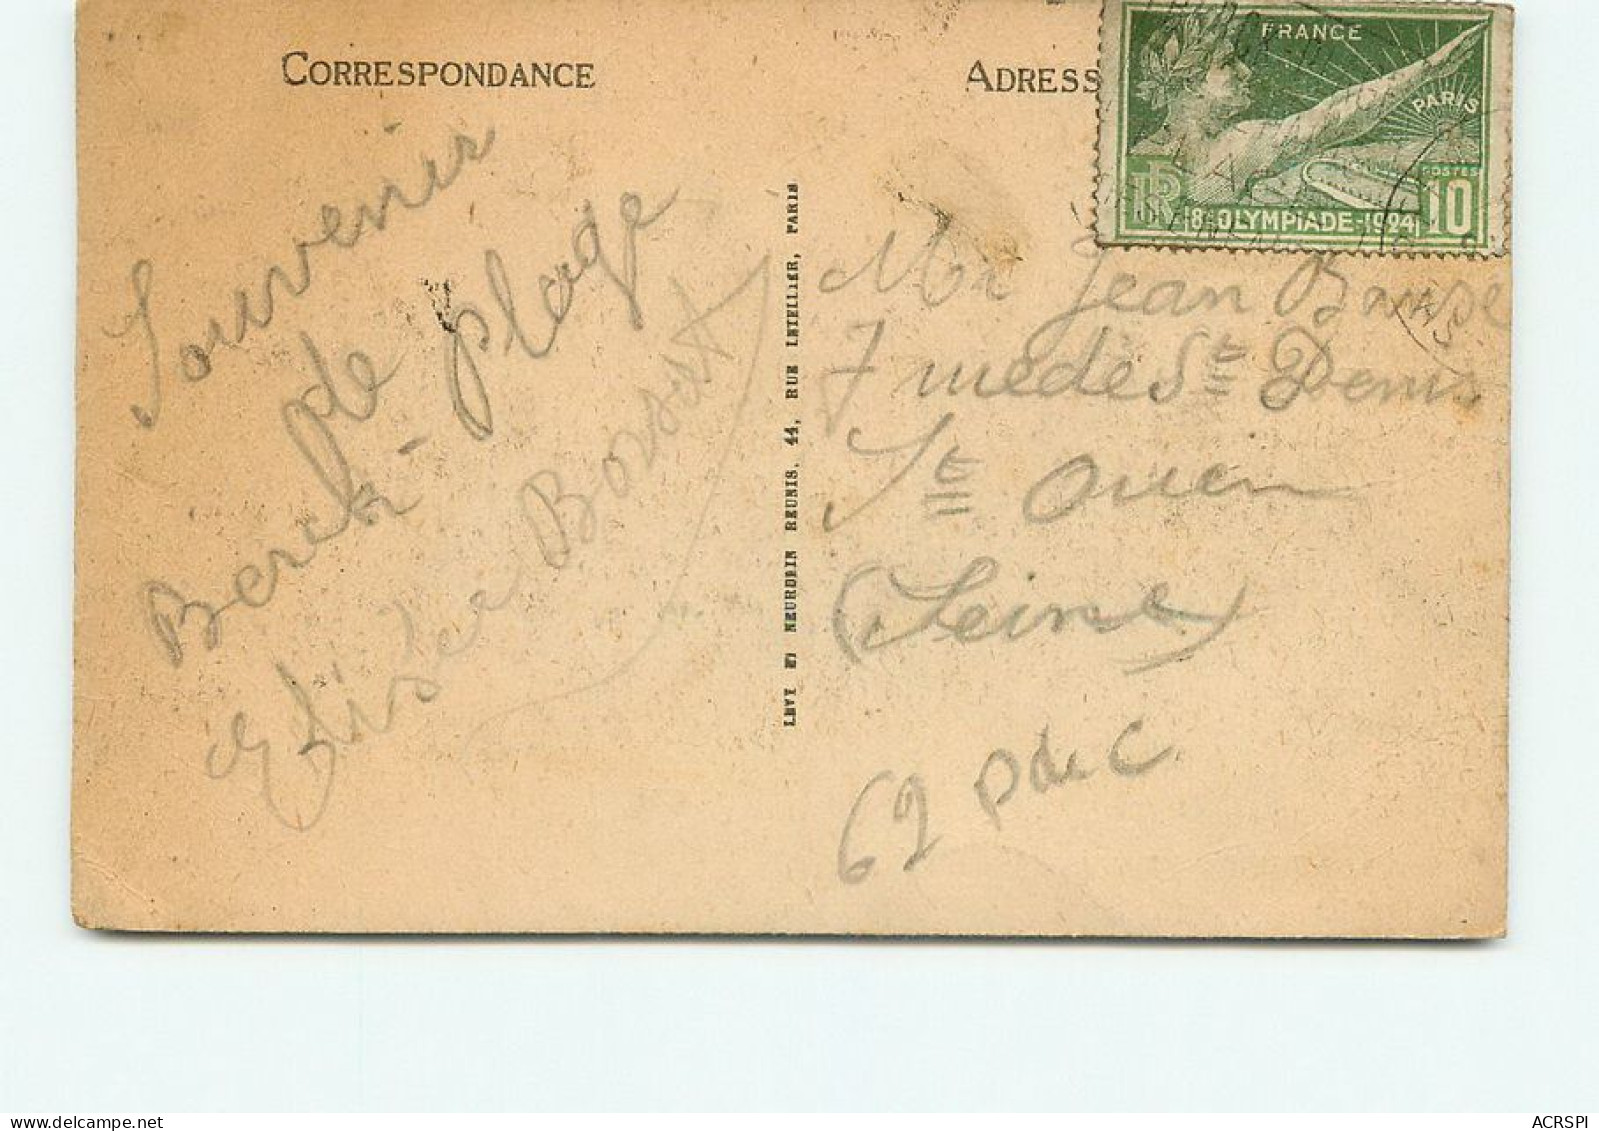 CORRESPONDANCE
Souvenir
de
Berck-plage
Elisée Bossut
LEVY ET NEURDEIN REUNIS, 44, RUE LETELLIER, PARIS
ADRESS
FRANCE
PARIS
POSTES
RF 8e OLYMPIADE-1924 10
Mr Jean
7 rue de St Denis
St Ouen
(Seine)
62 P de C
ACRSPI